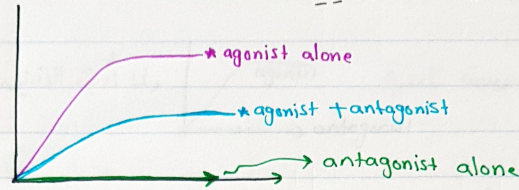 * agonist alone
* agonist + antagonist
antagonist alone